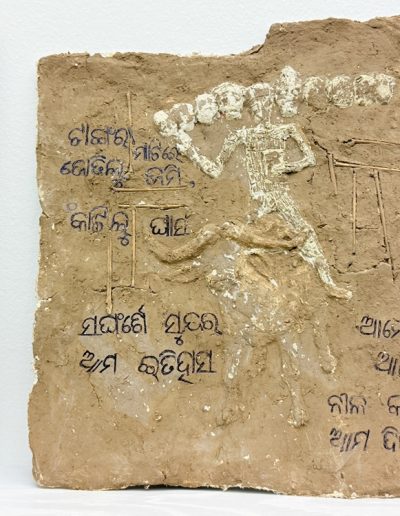 ଟାଙ୍ଗରା ମାଟିରେ
କୋଡିଲୁ ଜମି,
କାଟିଲୁ ଘାସ
ସଂଘର୍ଷେ ସୁନ୍ଦର
ଆମ ଇତିହାସ
ଆମେ
ନୀଳ
ଆମ